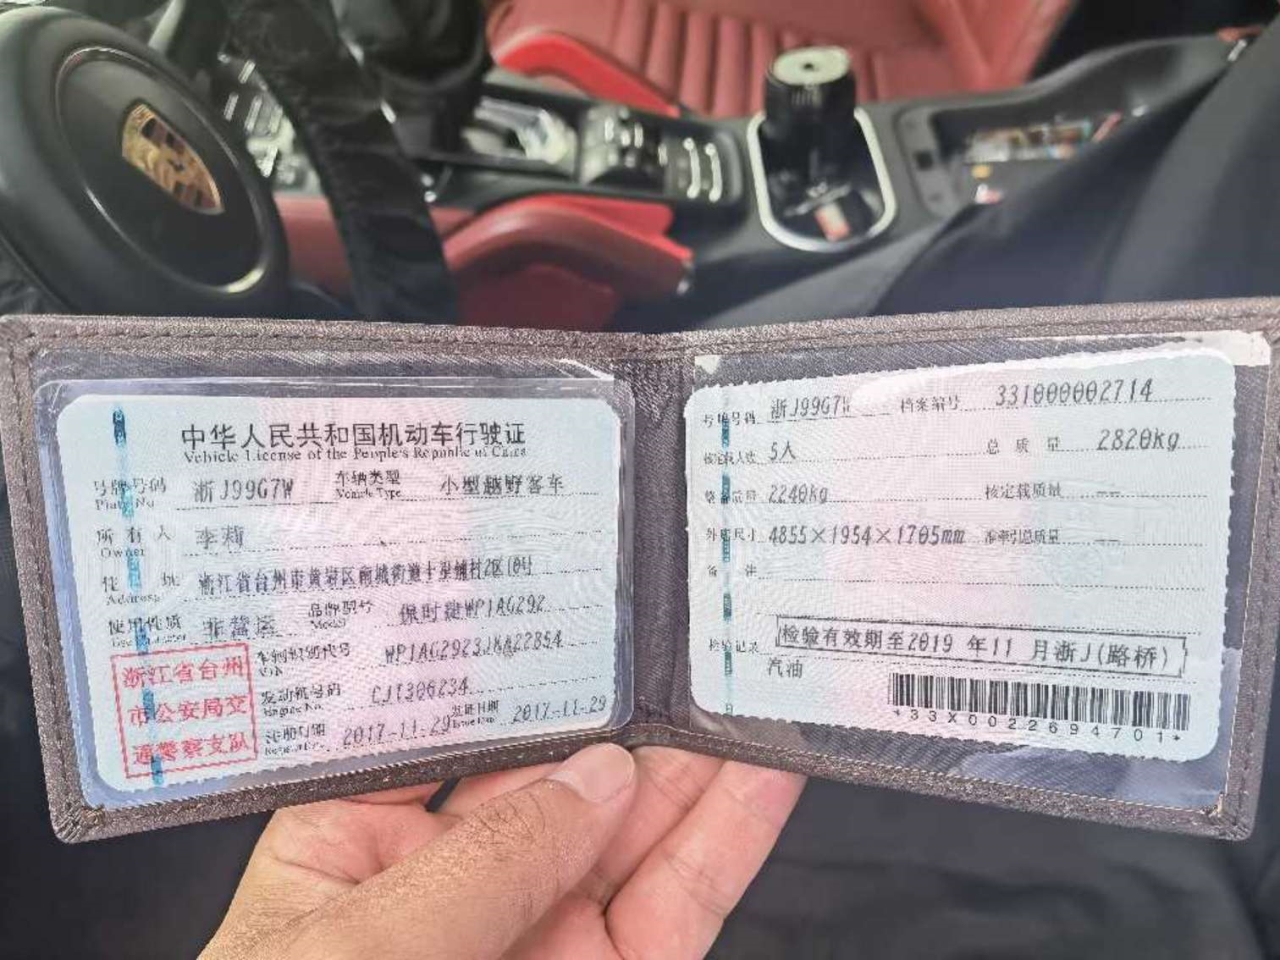 中华人民共和国机动车行驶证
Vehicle License of the People's Republic of China
号牌号码 浙J99G7W 车辆类型 小型越野客车
Plate No. Vehicle Type
所有人 李莉
Owner
住址 浙江省台州市黄岩区南城街道十里铺村2区10号
Address
使用性质 非营运 品牌型号 保时捷WP1AG292
Model
浙江省台州
市公安局交
通警察支队
车辆识别代号
VIN
发动机号码 CJT306234
Engine No.
注册日期 2017-11-29 发证日期 2017-11-29
号牌号码 浙J99G7W 档案编号 331000002714
核定载人数 5人 总质量 2820kg
整备质量 2240kg 核定载质量 --
外廓尺寸 4855×1954×1705mm 准牵引总质量 --
备注
检验记录 检验有效期至2019年11月浙J(路桥)
汽油
*33X0022694701*